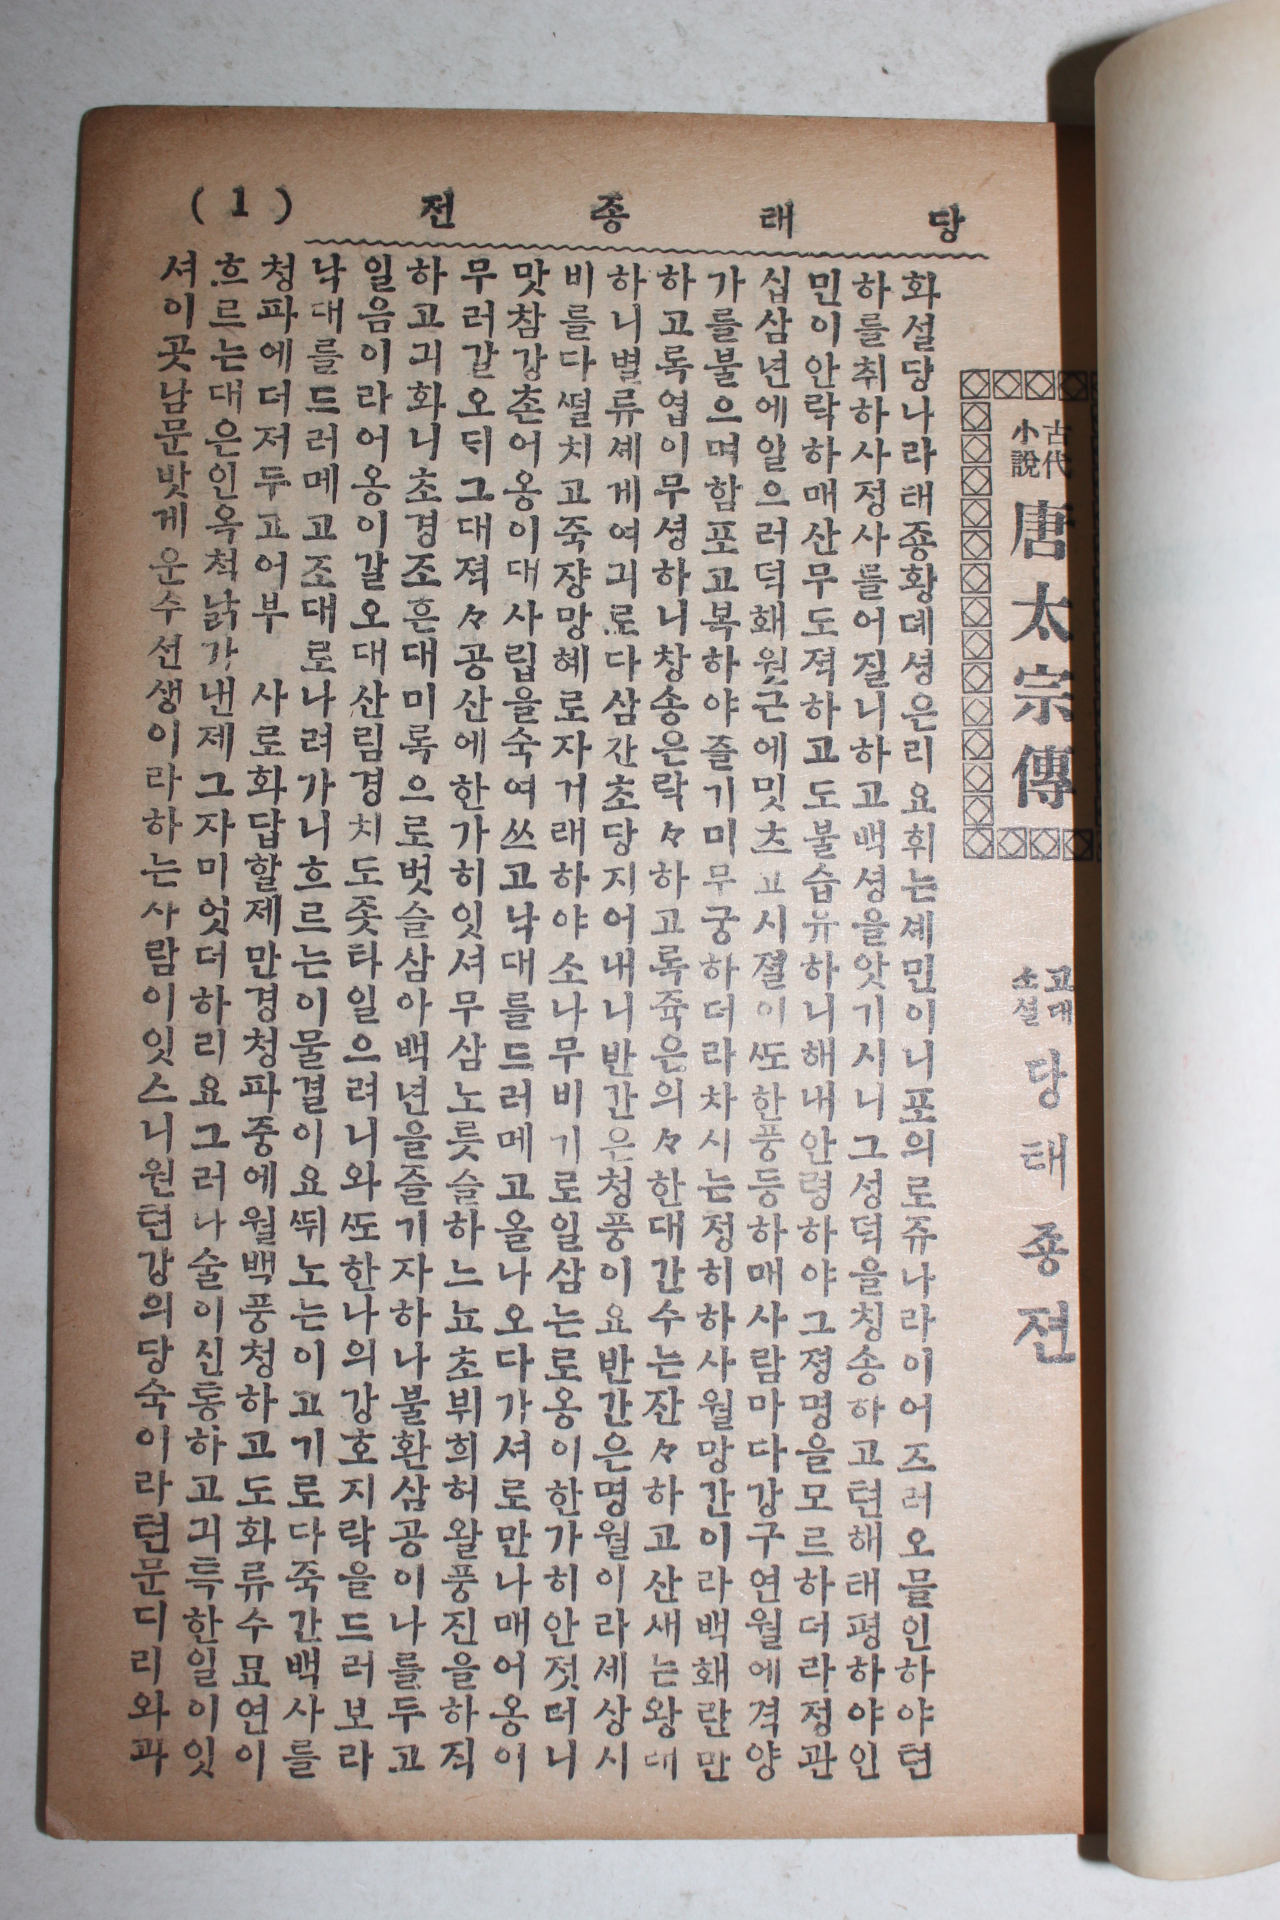 古代
小說
唐太宗傳
고대
소설
당태죵젼
당태종전 (1)
화설당나라태죵황뎨셩은리요휘는셰민이니포의로쥬나라이어즈러오믈인하야텬
하를취하사정사를어질니하고백셩을앗기시니그성덕을칭송하고텬해태평하야인
민이안락하매산무도젹하고도불습유하니해내안령하야그졍명을모르하더라정관
십삼년에일으러덕홰원근에밋츠고시졀이또한풍등하매사람마다강구연월에격양
가를불으며함포고복하야즐기미무궁하더라차시는정히하사월망간이라백홰란만
하고록엽이무셩하니창송은락々하고록쥭은의々한대간수는잔々하고산새는왕대
하니별류셰계여긔로다삼간초당지어내니반간은청풍이요반간은명월이라세상시
비를다떨치고죽쟝망혜로자거래하야소나무비기로일삼는로옹이한가히안젓더니
맛참강촌어옹이대사립을숙여쓰고낙대를드러메고올나오다가셔로만나매어옹이
무러갈오듸그대젹々공산에한가히잇셔무삼노릇슬하느뇨초뷔희허왈풍진을하직
하고긔화니초경조흔대미록으로벗슬삼아백년을즐기자하나불환삼공이나를두고
일음이라어옹이갈오대산림경치도죳타일으려니와또한나의강호지락을드러보라
낙대를드러메고조대로나려가니흐르는이물결이요뛰노는이고기로다죽간백사를
청파에더저두고어부 사로화답할제만경청파중에월백풍청하고도화류수묘연이
흐르는대은인옥척낡가낸제그자미엇더하리요그러나술이신통하고긔특한일이잇
셔이곳남문밧게운수선생이라하는사람이잇스니원텬강의당숙이라텬문디리와과